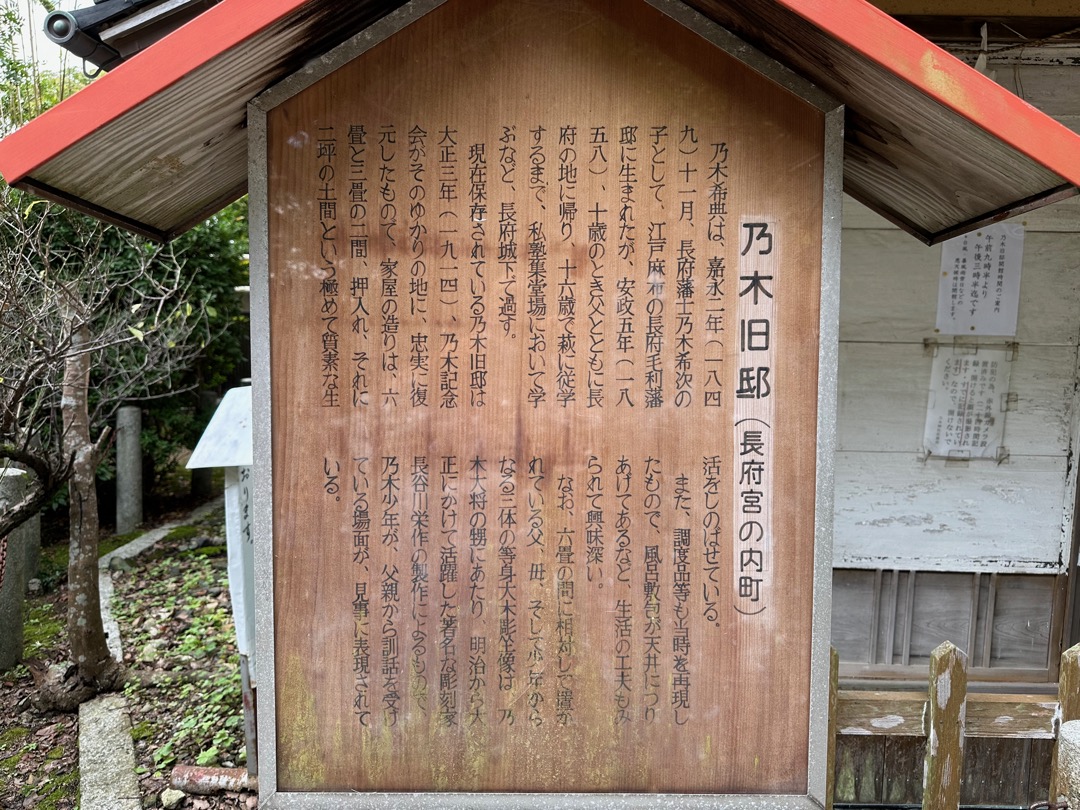 乃木旧邸（長府宮の内町）
乃木希典は、嘉永二年（一八四
九）十一月、長府藩士乃木希次の
子として、江戸麻布の長府毛利藩
邸に生まれたが、安政五年（一八
五八）、十歳のとき父とともに長
府の地に帰り、十六歳で萩に従学
するまで、私塾集堂場において学
ぶなど、長府城下で過す。
現在保存されている乃木旧邸は
大正三年（一九一四）、乃木記念
会がそのゆかりの地に、忠実に復
元したもので、家屋の造りは、六
畳と三畳の二間、押入れ、それに
二坪の土間という極めて質素な生
活をしのばせている。
また、調度品等も当時を再現し
たもので、風呂敷包が天井につり
あげてあるなど、生活の工夫もみ
られて興味深い。
なお、六畳の間に相対して置か
れている父、母、そして少年から
なる三体の等身大木彫坐像は、乃
木大将の甥にあたり、明治から大
正にかけて活躍した著名な彫刻家
長谷川栄作の製作によるもので、
乃木少年が、父親から訓話を受け
ている場面が、見事に表現されて
いる。
乃木旧邸開館時間のご案内
午前九時半より
午後三時半迄です
ください。
おります。